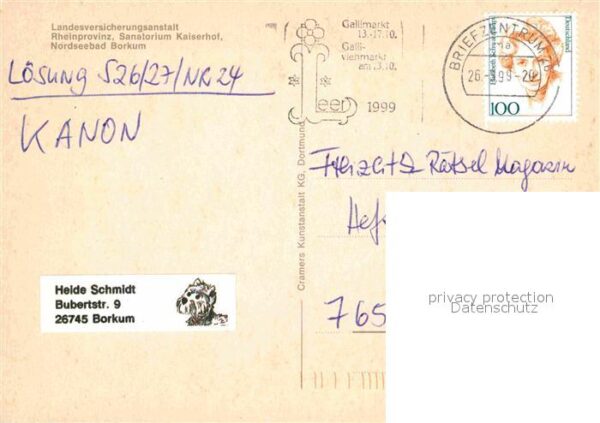 Landesversicherungsanstalt
Rheinprovinz, Sanatorium Kaiserhof,
Nordseebad Borkum
LÖSUNG S26/27/NR 24
KANON
Heide Schmidt
Bubertstr. 9
26745 Borkum
Cramers Kunstanstalt KG, Dortmund
Gallimarkt
13.-17.10.
Galli-
viehmarkt
am 13.10.
Leer
1999
BRIEFZENTRUM
26. 99-20
Deutschland
100
Freizeit & Rätsel Magazin
765
privacy protection
Datenschutz